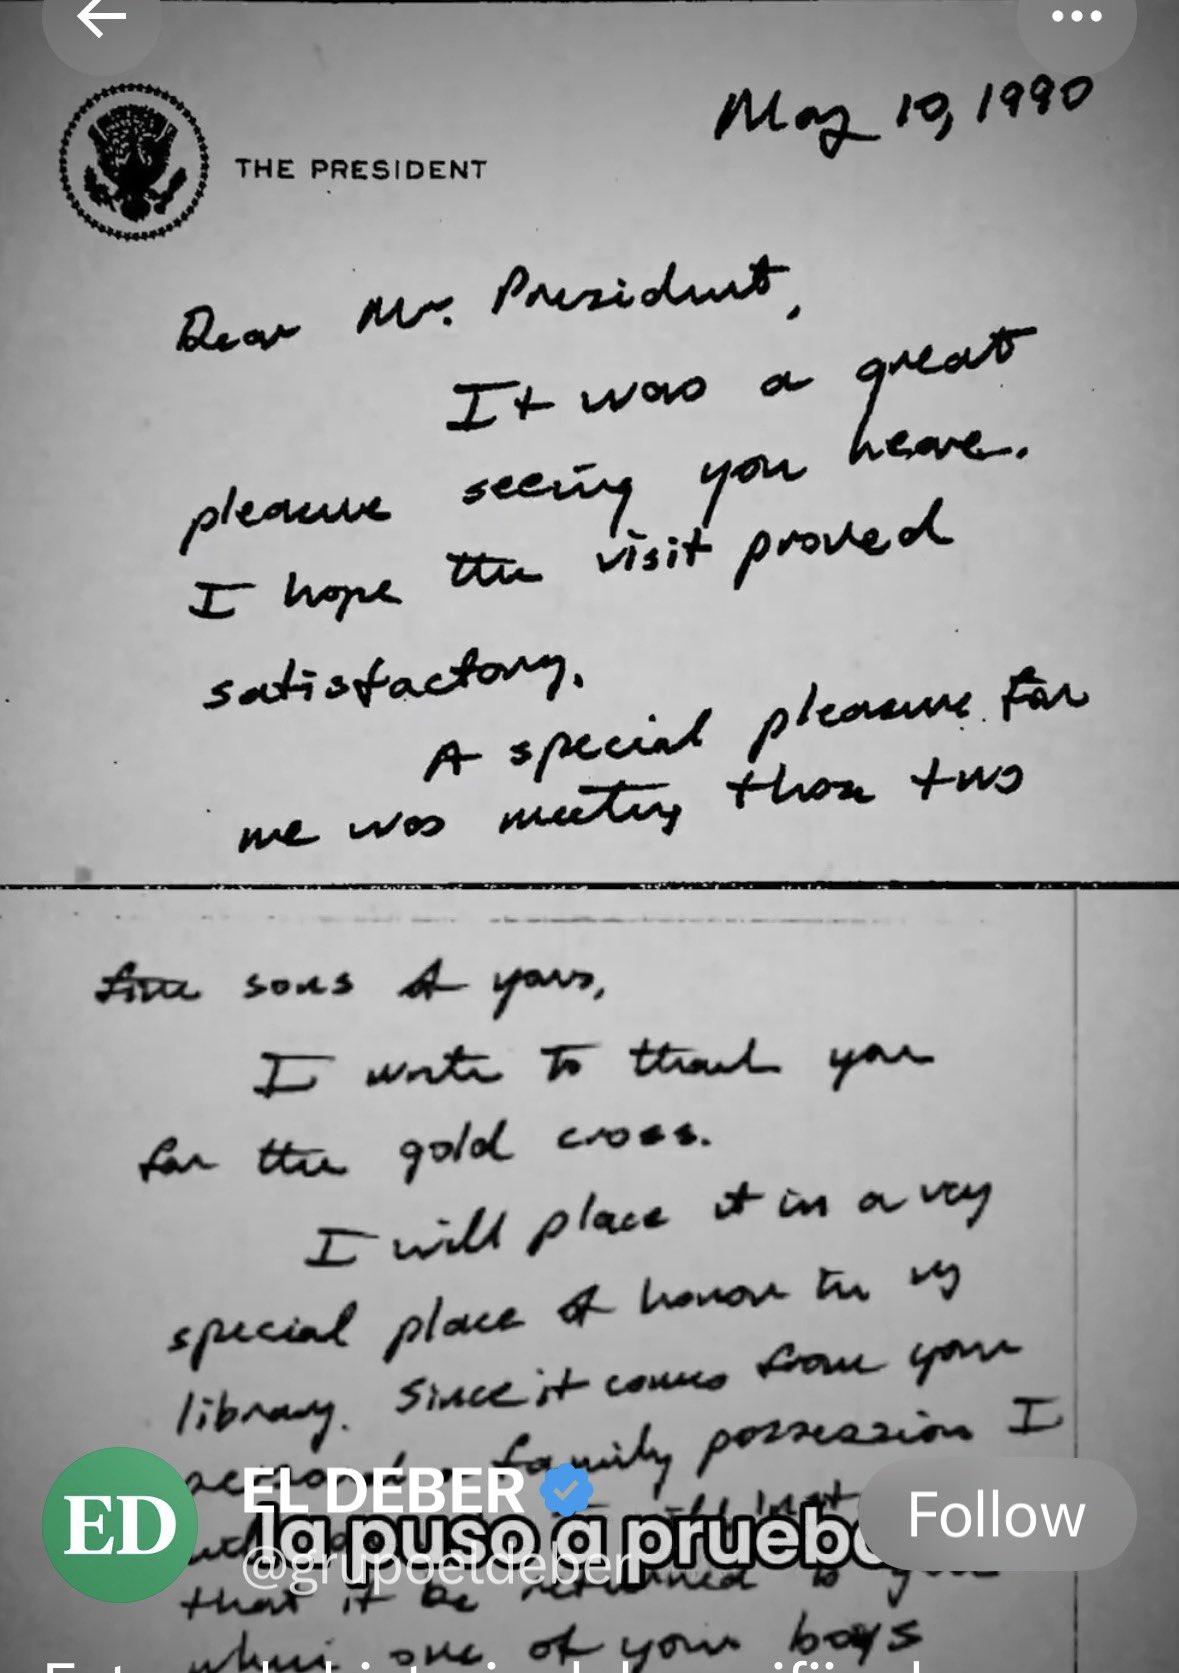 May 10, 1990
THE PRESIDENT
Dear Mr. President,
It was a great
pleasure seeing you here.
I hope the visit proved
satisfactory.
A special pleasure for
me was meeting those two
fine sons of yours,
I write to thank you
for the gold cross.
I will place it in a very
special place of honor in my
library. Since it comes from your
personal family possession I
will
EL DEBER
Follow
ED
la puso a prueba
@grupoeldeber
that it be returned to you
when one of your boys